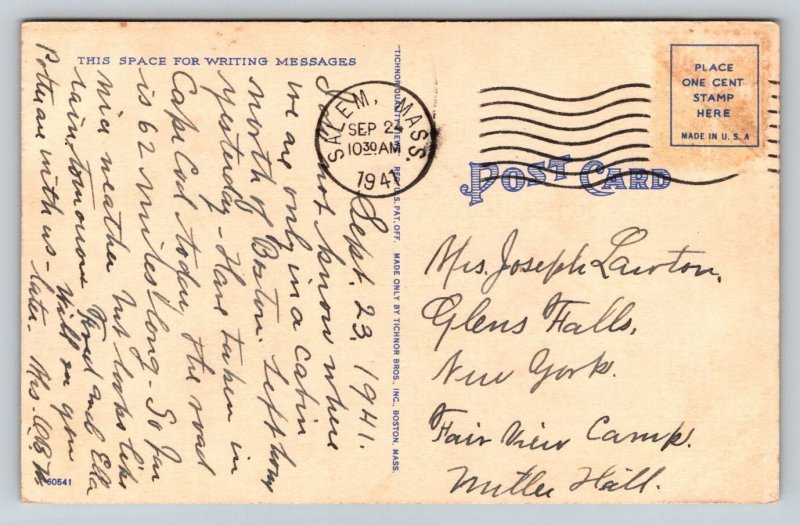 THIS SPACE FOR WRITING MESSAGES
Sept. 23, 1941.
I do not know where
we are only in a cabin
north of Boston. Left home
yesterday - Have taken in
Cape Cod today, the road
is 62 miles long. So far
nice weather but looks like
rain tomorrow. Fred and Ella
Putnam with us - Will see you
later. Mrs.
60541
"TICHNOR QUALITY VIEWS" REG. U. S. PAT. OFF. MADE ONLY BY TICHNOR BROS., INC., BOSTON, MASS.
SALEM, MASS
SEP 24
10 30 AM
1941
PLACE
ONE CENT
STAMP
HERE
MADE IN U. S. A
POST CARD
Mrs. Joseph Lawton,
Glens Falls,
New York.
Fair View Camp.
Hall.